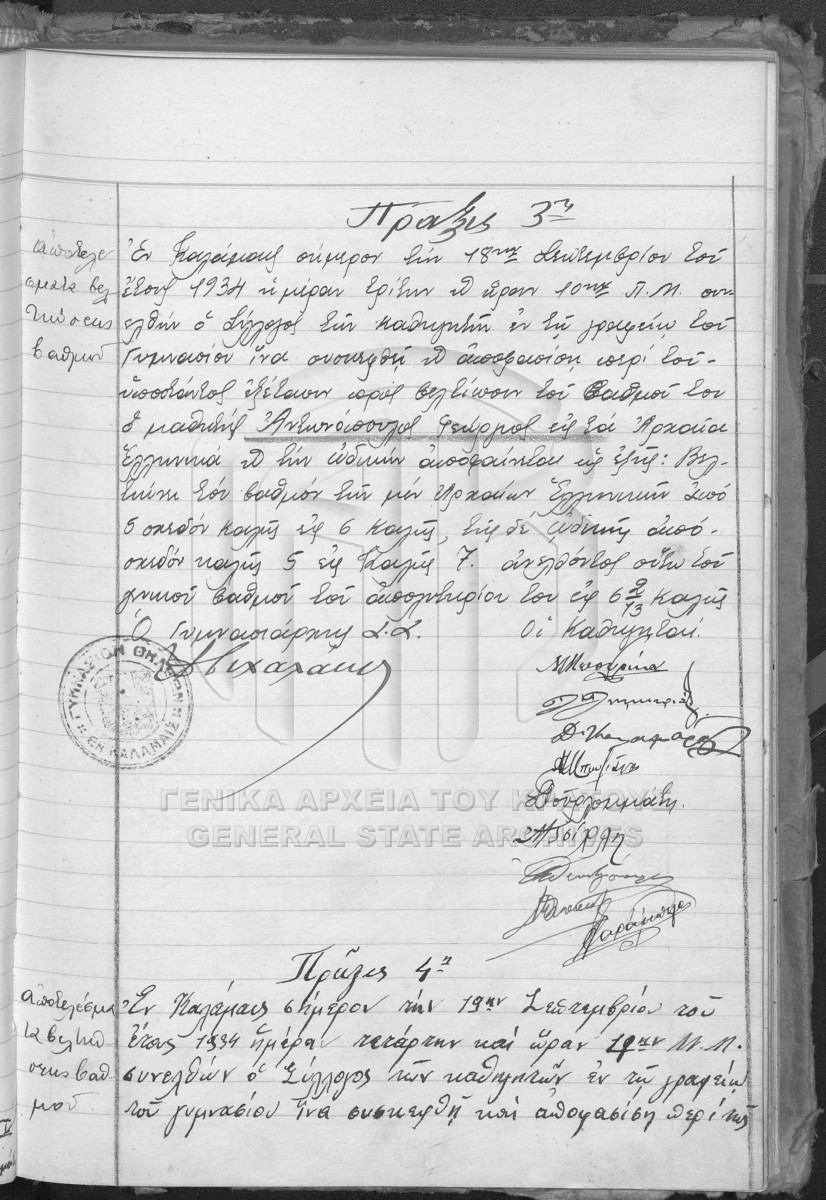 Πρᾶξις 3η
ἀποτελέ
σματα βελ
τιώσεως
βαθμοῦ
Ἐν Καλάμαις σήμερον τὴν 18ην Σεπτεμβρίου τοῦ
ἔτους 1934 ἡμέραν τρίτην κ ὥραν 10ην Π.Μ. συν
ελθὼν ὁ Σύλλογος τῶν καθηγητῶν ἐν τῷ γραφείῳ τοῦ
Γυμνασίου ἵνα συσκεφθῇ κ ἀποφασίσῃ περὶ τοῦ-
ὑποστάντος ἐξέτασιν πρὸς βελτίωσιν τοῦ βαθμοῦ του
ὁ μαθητής Ἀντωνόπουλος Γεώργιος εἰς τὰ Ἀρχαῖα
Ἑλληνικὰ κ τὴν ᾠδικὴν ἀποφαίνεται ὡς ἑξῆς: Βελ-
τιώνει τὸν βαθμὸν τῶν μὲν Ἀρχαίων Ἑλληνικῶν ἀπὸ
5 σχεδὸν καλῶς εἰς 6 καλῶς, τῆς δὲ ᾠδικῆς ἀπὸ-
σχεδὸν καλῶς 5 εἰς Καλῶς 7. ἀνελθόντος οὕτω τοῦ
γενικοῦ βαθμοῦ τοῦ ἀπολυτηρίου του εἰς 6 2/13 καλῶς
Ὁ Γυμνασιάρχης Α.Α.
Οἱ Καθηγηταί.
ΓΥΜΝΑΣΙΟΝ ΘΗΛΕΩΝ
ΕΝ ΚΑΛΑΜΑΙΣ
ΓΕΝΙΚΑ ΑΡΧΕΙΑ ΤΟΥ ΚΡΑΤΟΥΣ
GENERAL STATE ARCHIVES
Πρᾶξις 4η
ἀποτελέσμα
τα βελτιώ
σεως βαθ
μοῦ
Ἐν Καλάμαις σήμερον τὴν 19ην Σεπτεμβρίου τοῦ
ἔτους 1934 ἡμέραν τετάρτην καὶ ὥραν Μ.Μ.
συνελθὼν ὁ Σύλλογος τῶν καθηγητῶν ἐν τῷ γραφείῳ
τοῦ γυμνασίου ἵνα συσκεφθῇ καὶ ἀποφασίσῃ περὶ τῆς